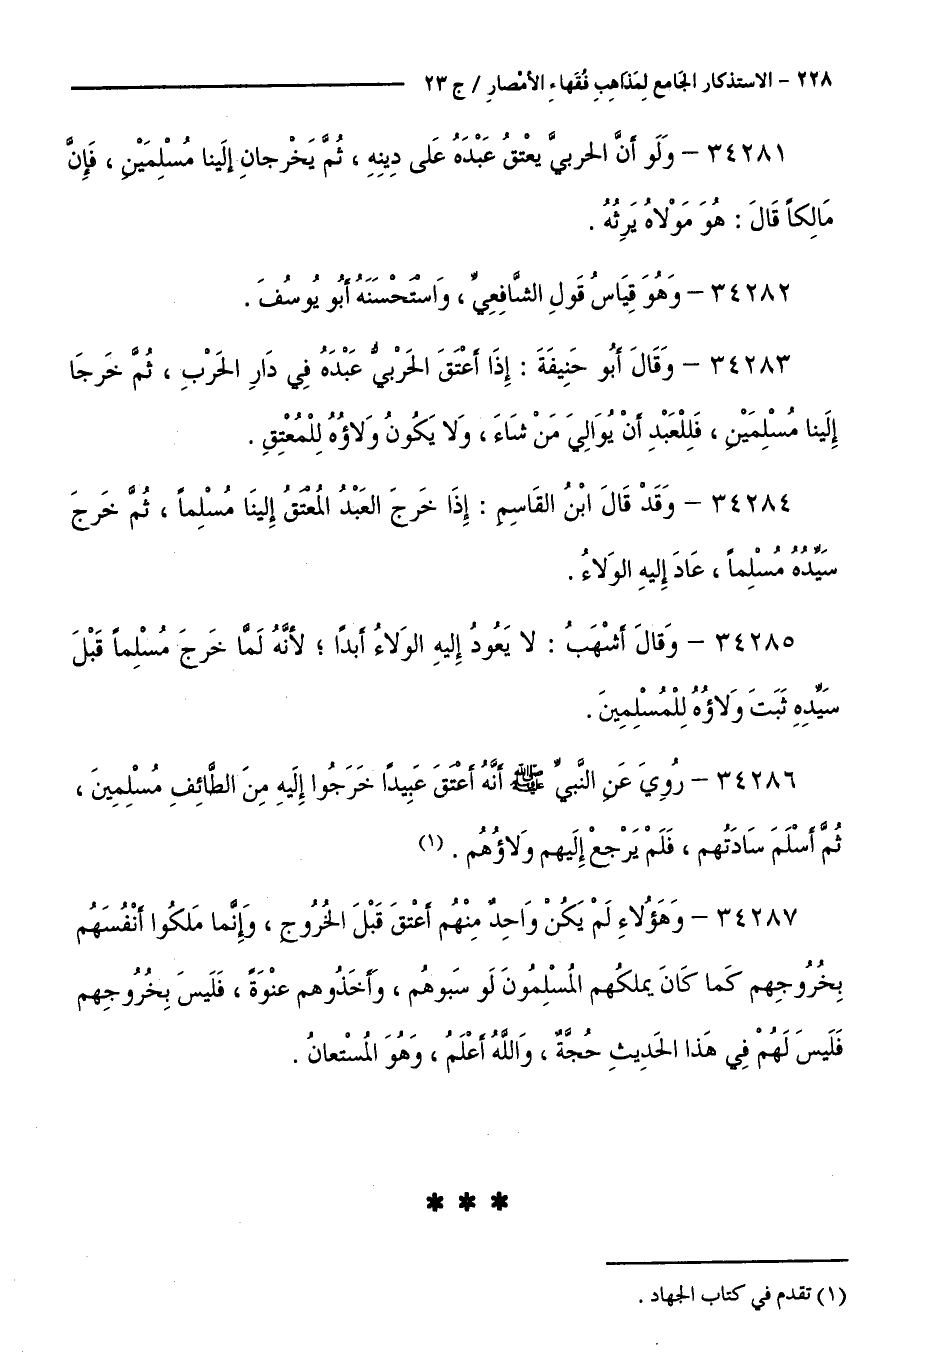 ٢٢٨ - الاستذكار الجَامع لِمَذاهِبِ فُقَهاءِ الأمْصارِ / ج ٢٣
٣٤٢٨١ – وَلَو أَنَّ الحربيَّ يعْتقُ عَبْدَهُ عَلى دِينِهِ ، ثُمَّ يَخْرجانِ إِلَينا مُسْلِمَيْنِ ، فَإِنَّ
مَالِكاً قَالَ : هُوَ مَوْلاهُ يَرِثُهُ .
٣٤٢٨٢ – وَهُوَ قِيَاسُ قَولِ الشَّافِعِيِّ ، وَاسْتَحْسَنَهُ أَبُو يُوسُفَ .
٣٤٢٨٣ – وَقَالَ أَبُو حَنِيفَةَ : إِذَا أَعْتَقَ الحَرْبيُّ عَبْدَهُ فِي دَارِ الحَرْبِ ، ثُمَّ خَرجَا
إِلَينا مُسْلِمَيْنِ ، فَلِلْعَبْدِ أَنْ يُوَالِيَ مَنْ شاءَ ، وَلا يَكونُ وَلاؤُهُ لِلْمُعْتِقِ .
٣٤٢٨٤ – وَقَدْ قَالَ ابْنُ القَاسِمِ : إِذَا خَرجَ العَبْدُ المُعْتَقُ إِلَينَا مُسْلِماً ، ثُمَّ خَرجَ
سَيِّدُهُ مُسْلِماً ، عَادَ إِليهِ الوَلاءُ .
٣٤٢٨٥ – وَقالَ أَشْهَبُ : لا يَعُودُ إِليهِ الوَلاءُ أَبدًا ؛ لأَنَّهُ لَمَّا خَرجَ مُسْلِماً قَبْلَ
سَيِّدِهِ ثَبَتَ وَلاؤُهُ لِلْمُسْلِمِينَ .
٣٤٢٨٦ – رُوِيَ عَنِ النَّبيِّ ﷺ أَنَّهُ أَعْتَقَ عَبِيدًا خَرَجُوا إِلَيهِ مِنَ الطَّائِفِ مُسْلِمِينَ ،
ثُمَّ أَسْلَمَ سَادَتُهم ، فَلَمْ يَرْجعْ إِلَيهم وَلاؤُهُم . (١)
٣٤٢٨٧ – وَهَؤُلاءِ لَمْ يَكُنْ وَاحِدٌ مِنْهُم أَعْتقَ قَبْلَ الخُروجِ ، وَإِنَّما مَلكُوا أَنْفُسَهُم
بِخُرُوجِهم كَما كَانَ يملكُهم المُسْلِمُونَ لَو سَبوهُم ، وَأَخَذُوهم عنْوَةً ، فَلَيسَ بِخُرُوجِهم
فَلَيسَ لَهُمْ فِي هَذا الحَدِيثِ حُجَّةٌ ، وَاللَّهُ أَعْلَمُ ، وَهُوَ المُسْتعانُ .
* * *
(١) تقدم في كتاب الجهاد .